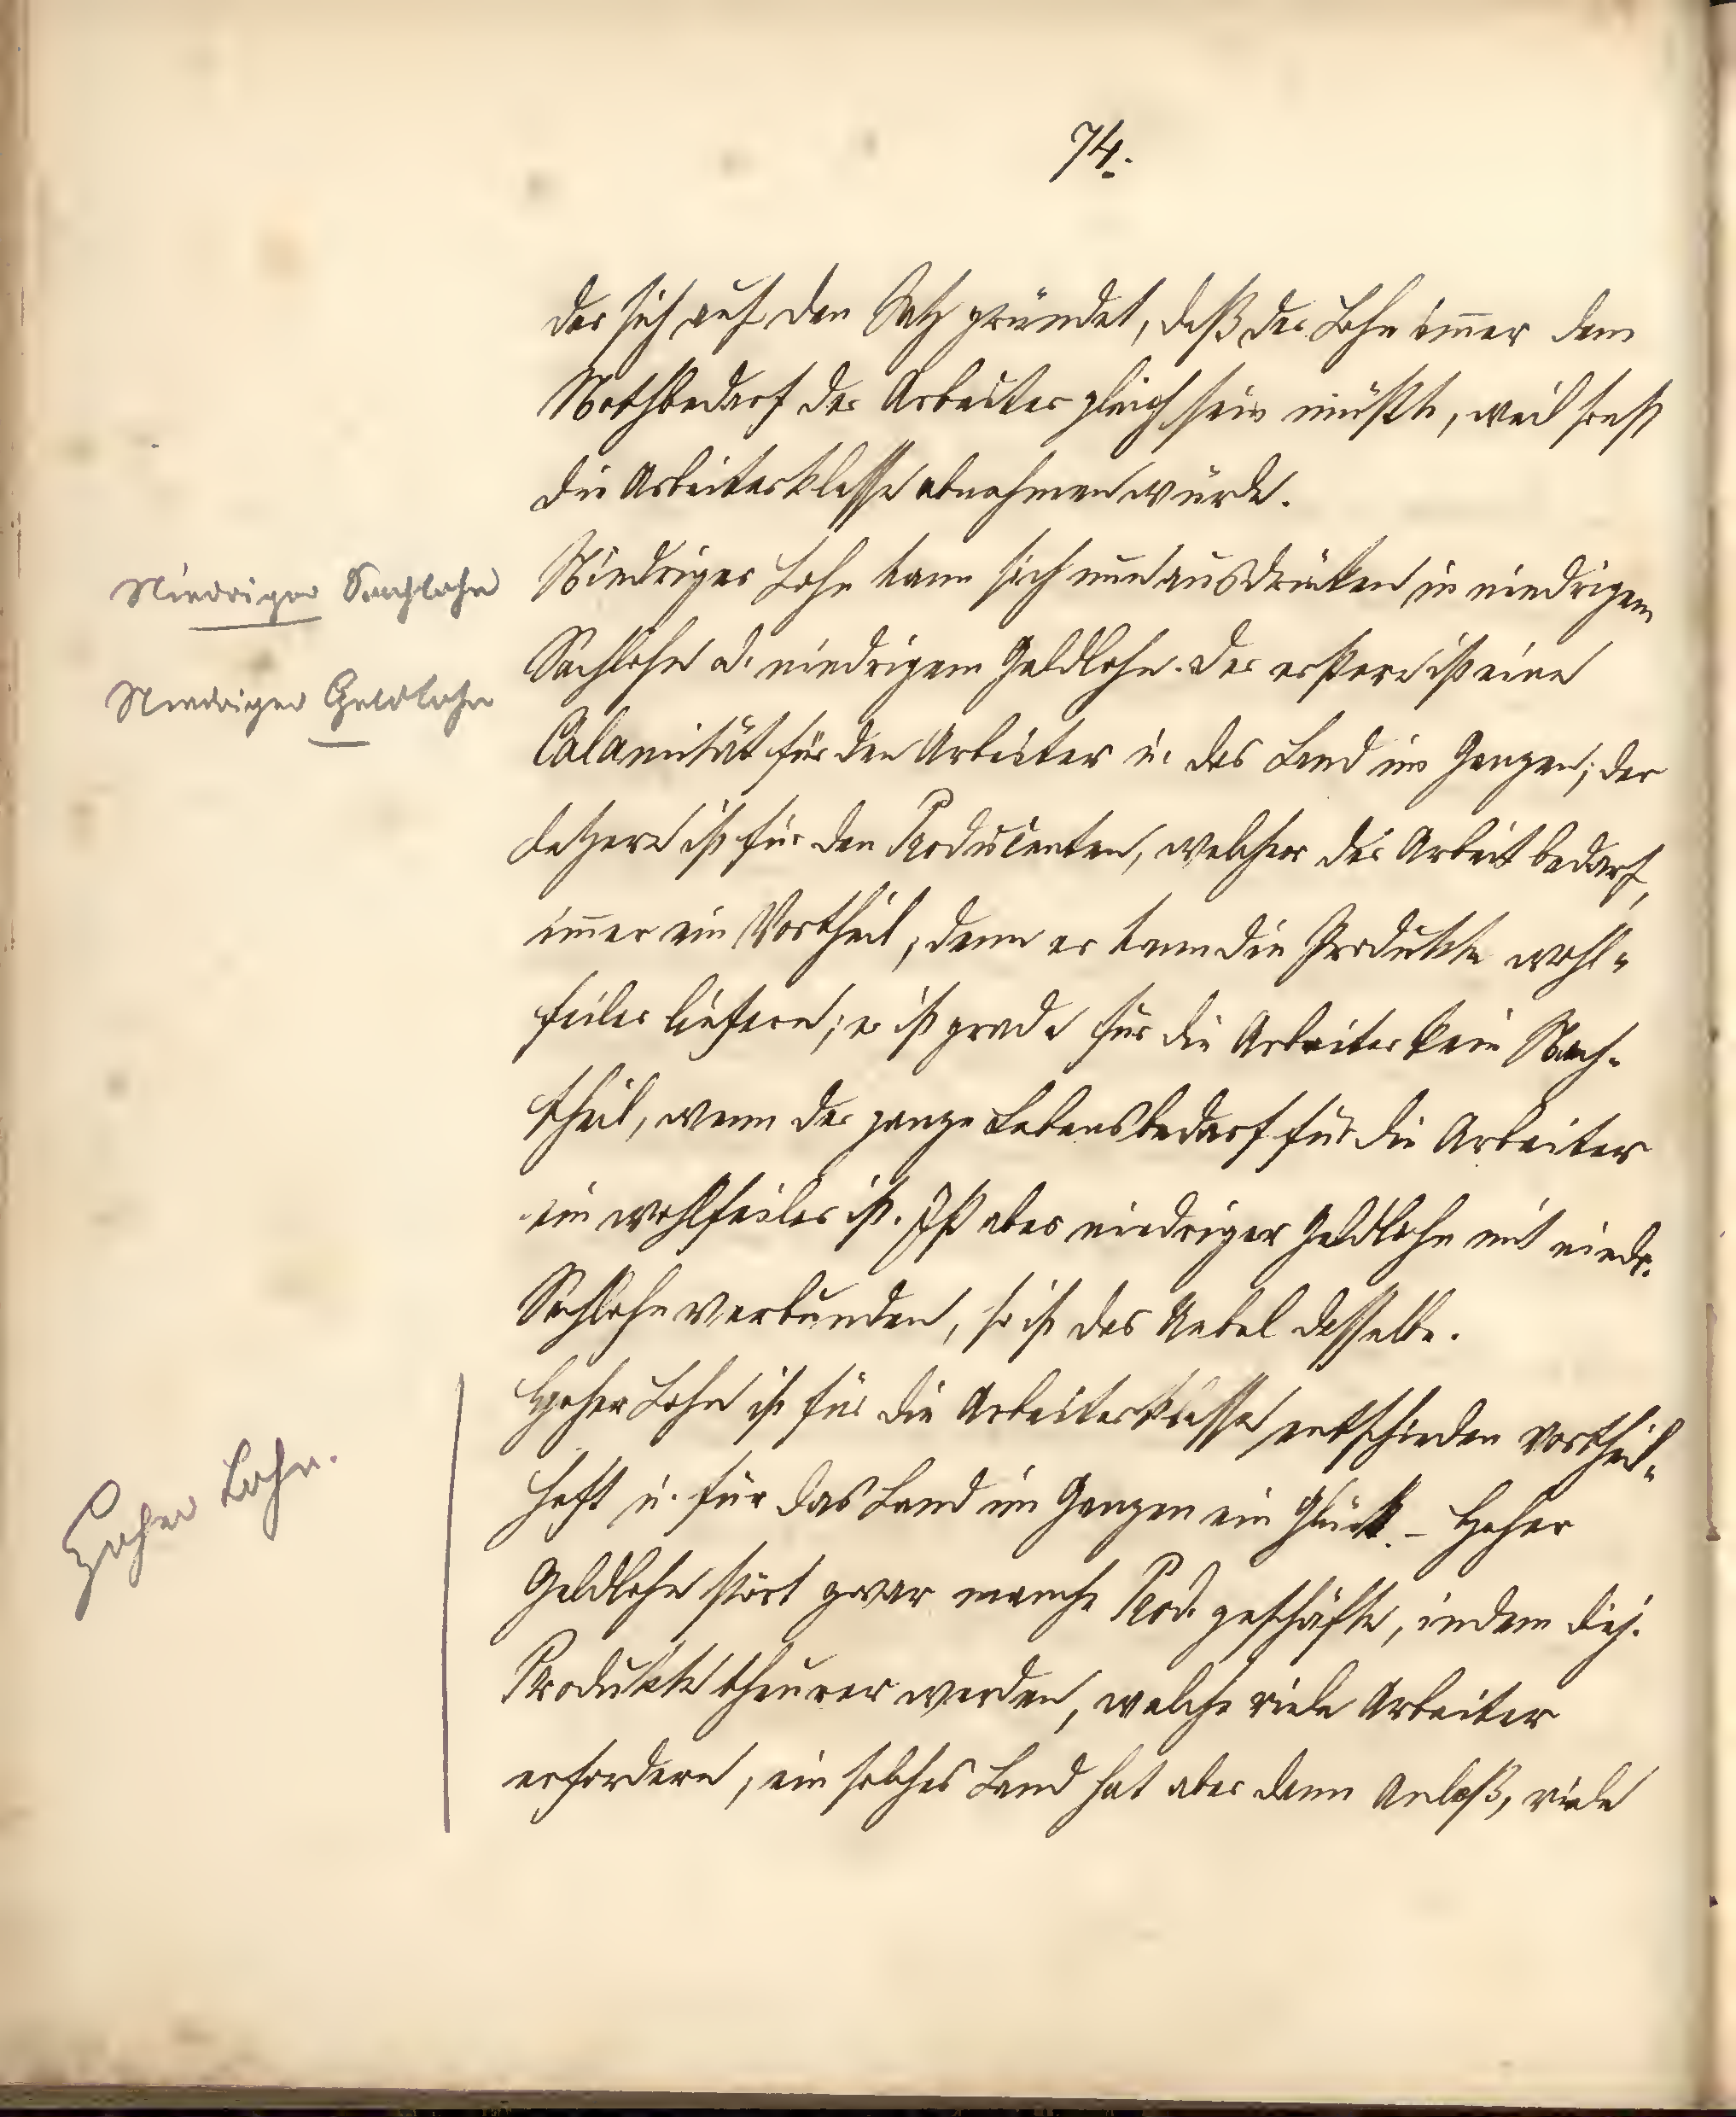 74.
der sich auf den Satz gründet, daß der Lohn im̄er dem
Nothbedarf der Arbeiter gleich sein müßte, weil sonst
die Arbeiterklasse abnehmen würde.
Niedriger Sachlohn
Niedriger Lohn kann sich nun ausdrücken in niedrigem
Sachlohn od. niedrigem Geldlohn. Der erstere ist eine
Niedriger Geldlohn
Calamität für den Arbeiter u. das Land im Ganzen; der
letzere ist für den Producenten, welcher der Arbeit bedarf,
im̄er ein Vortheil, denn er kann die Produkte wohl-
feiler liefern; er ist grade für die Arbeiter kein Nach-
theil, wenn der ganze Lebensbedarf für die Arbeiter
ein wohlfeiler ist. Ist aber niedriger Geldlohn mit niedr.
Sachlohn verbunden, so ist das Uebel dasselbe.
Hoher Lohn.
Hoher Lohn ist für die Arbeiterklasse entschieden vortheil-
haft u. für das Land im Ganzen ein Glück. – Hoher
Geldlohn stört zwar manche Prod. geschäfte, indem diej.
Produkte theurer werden, welche viele Arbeiter
erfordern, ein solches Land hat aber dann Anlaß, viele